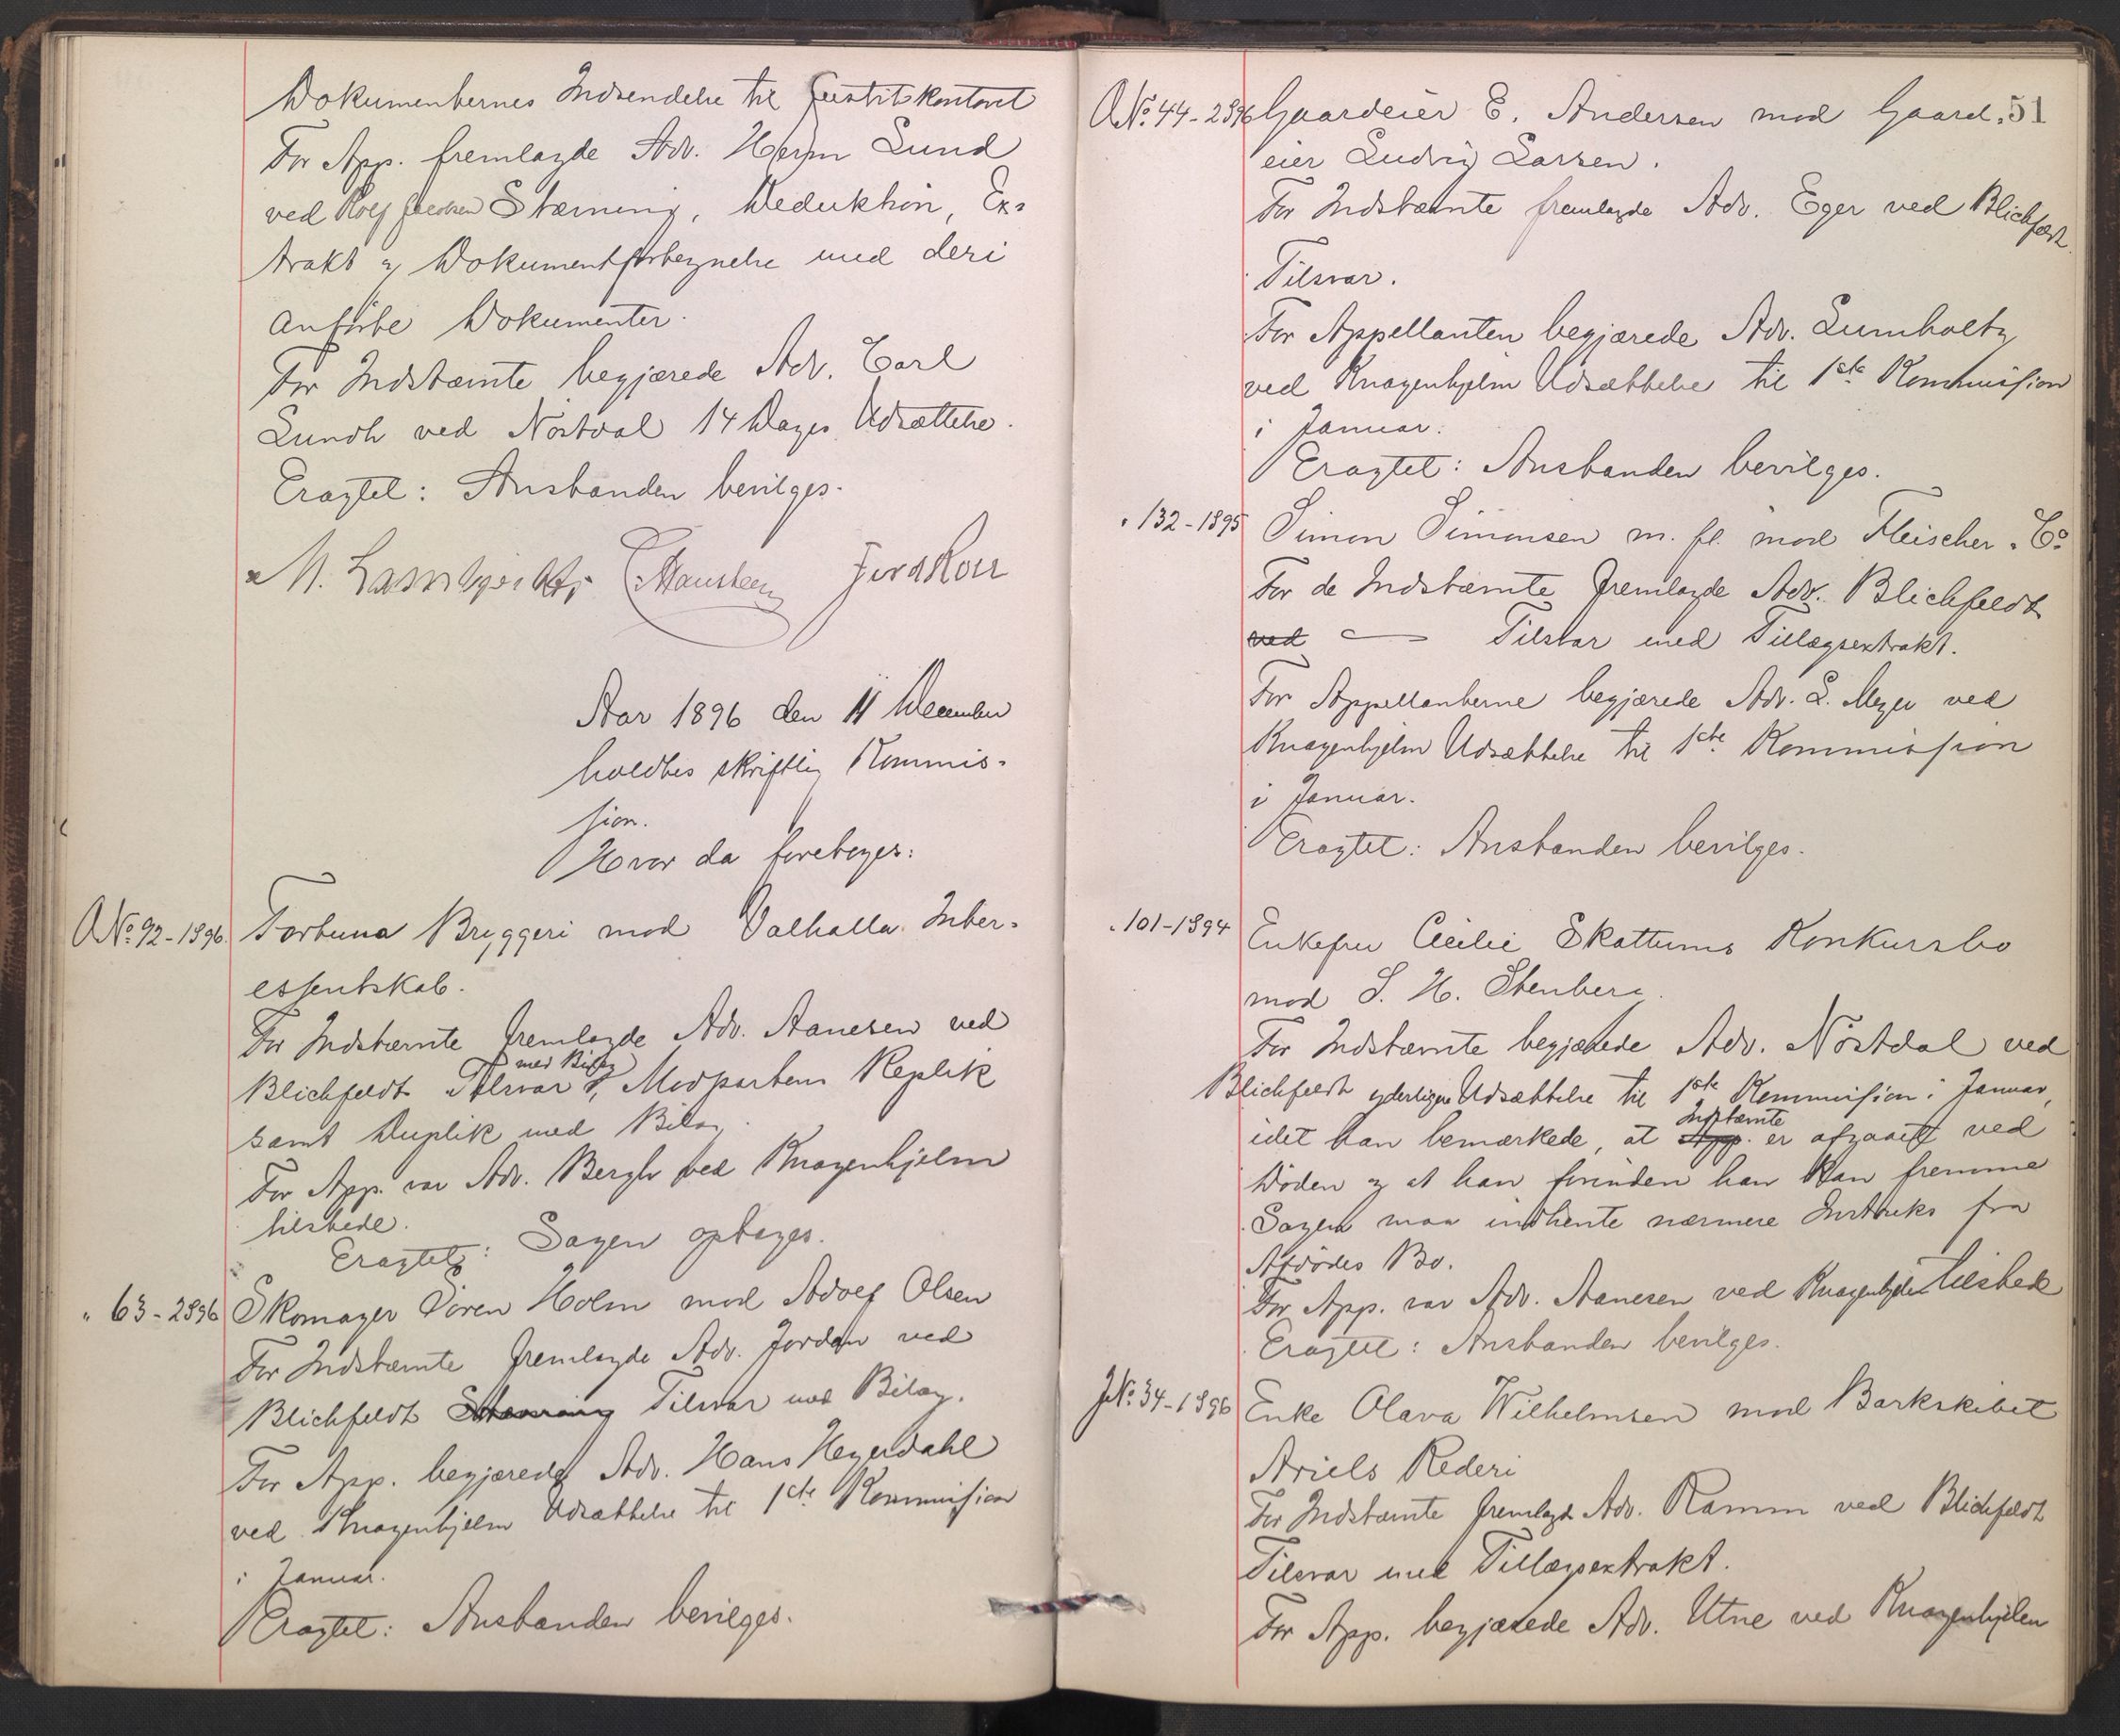 Dokumenternes Indsendelse til Justitskontoret
For App. fremlagde Adv. Herm Lund
ved Rolf Stævning, Deduktion, Ex-
trakt og Dokumentfortegnelse med deri
anførte Dokumenter.
For Indstævnte begjærede Adv. Carl
Lundh ved Nöstdal 14 Dages Udsættelse.
Eragtet: Anstanden bevilges.
Aar 1896 den 11 December
holdtes skriftlig Kommis-
sion.
Hvor da foretoges:
A No. 92-1896. Fortuna Bryggeri mod Valhalla Inter-
essentskab.
For Indstævnte fremlagde Adv. Aanesen ved
med Bilag
Blichfeldt Tilsvar, Modpartens Replik
samt Duplik med Bilag.
For App. var Adv. Bergh ved Knagenhjelm
tilstede.
Eragtet: Sagen optages.
" 63-2896 Skomager Sören Holm mod Adolf Olsen
For Indstævnte fremlagde Adv. Jordan ved
Blichfeldt Stævning Tilsvar med Bilag.
For App. begjærede Adv. Hans Heyerdahl
ved Knagenhjelm Udsættelse til 1ste Kommission
i Januar.
Eragtet: Anstanden bevilges.
51
A No. 44-2896 Gaardeier E. Andersen mod Gaard-
eier Ludvig Larsen.
For Indstævnte fremlagde Adv. Eger ved Blichfeldt
Tilsvar.
For Appellanten begjærede Adv. Lumholtz
ved Knagenhjelm Udsættelse til 1ste Kommission
i Januar.
Eragtet: Anstanden bevilges.
" 132-1895 Simon Simonsen m. fl. mod Fleischer & Co
For de Indstævnte fremlagde Adv. Blichfeldt
ved Tilsvar med Tillægsextrakt.
For Appellanterne begjærede Adv. L. Meyer ved
Knagenhjelm Udsættelse til 1ste Kommission
i Januar.
Eragtet: Anstanden bevilges.
" 101-1894 Enkefru Cecilie Skattums Konkursbo
mod S. H. Stenberg.
For Indstævnte begjærede Adv. Nöstdal ved
Blichfeldt yderligere Udsættelse til 1ste Kommission i Januar,
Indstævnte
idet han bemærkede, at App. er afgaaet ved
Döden og at han forinden han kan fremme
Sagen maa indhente nærmere Instruks fra
Afdödes Bo.
For App. var Adv. Aanesen ved Knagenhjelm tilstede
Eragtet: Anstanden bevilges.
J No. 34-1896 Enke Olava Wilhelmsen mod Barkskibet
Ariels Rederi
For Indstævnte fremlagde Adv. Ramm ved Blichfeldt
Tilsvar med Tillægsextrakt.
For App. begjærede Adv. Utne ved Knagenhjelm